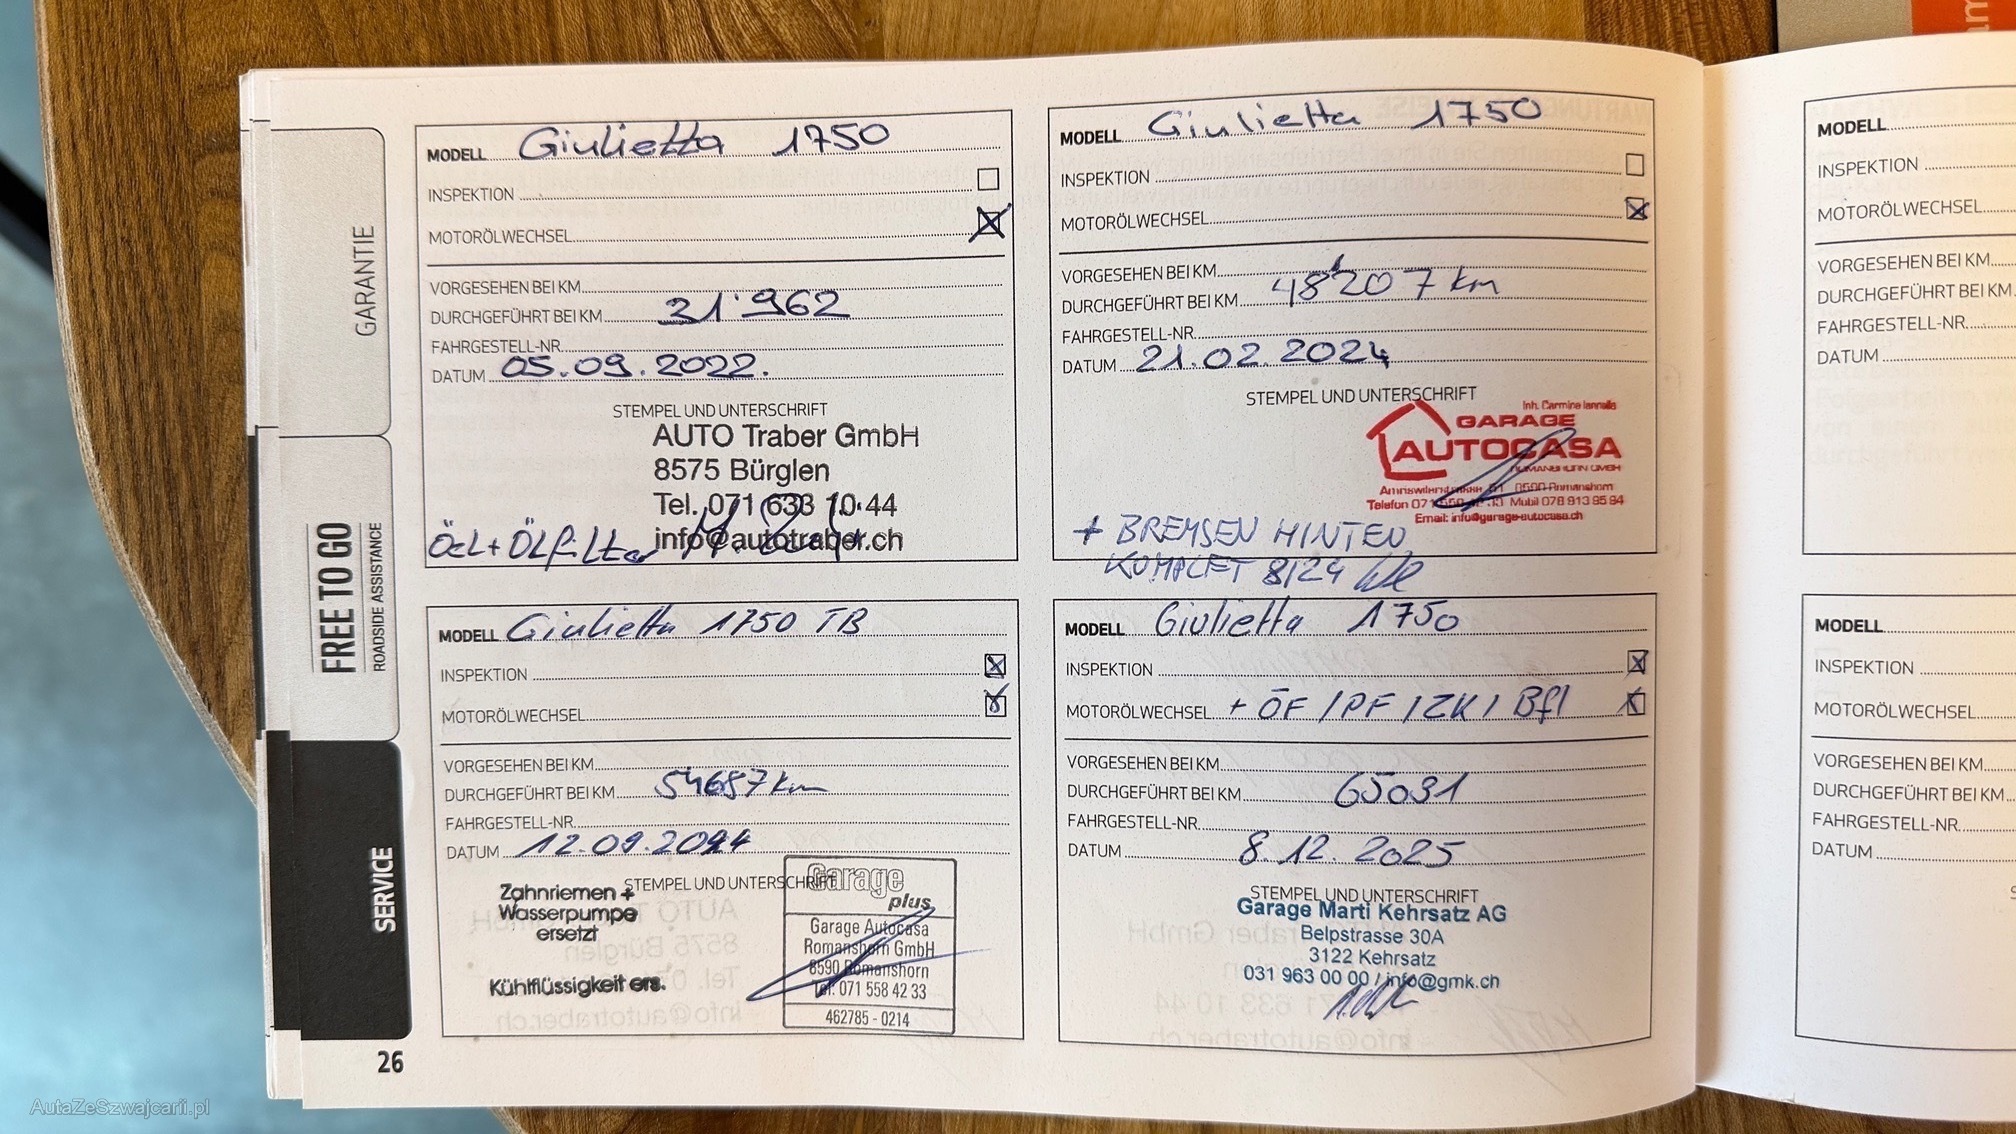 GARANTIE
FREE TO GO
ROADSIDE ASSISTANCE
SERVICE
26
MODELL Giulietta 1750
INSPEKTION
MOTORÖLWECHSEL
VORGESEHEN BEI KM
DURCHGEFÜHRT BEI KM 31'962
FAHRGESTELL-NR.
DATUM 05.09.2022.
STEMPEL UND UNTERSCHRIFT
AUTO Traber GmbH
8575 Bürglen
Tel. 071 633 10 44
info@autotraber.ch
Öel + Ölfilter
MODELL Giulietta 1750
INSPEKTION
MOTORÖLWECHSEL
VORGESEHEN BEI KM
DURCHGEFÜHRT BEI KM 48'207 km
FAHRGESTELL-NR.
DATUM 21.02.2024
STEMPEL UND UNTERSCHRIFT
Inh. Carmine Iannella
GARAGE
AUTOCASA
ROMANSHORN GMBH
8590 Romanshorn
Telefon 071 Mobil 078 913 95 94
Email: info@garage-autocasa.ch
+ BREMSEN HINTEN
KOMPLET 8/24
MODELL Giulietta 1750 TB
INSPEKTION
MOTORÖLWECHSEL
VORGESEHEN BEI KM
DURCHGEFÜHRT BEI KM 54687 km
FAHRGESTELL-NR.
DATUM 12.09.2024
STEMPEL UND UNTERSCHRIFT
Zahnriemen +
Wasserpumpe
ersetzt
Kühlflüssigkeit ers.
Garage
plus
Garage Autocasa
Romanshorn GmbH
8590 Romanshorn
Tel. 071 558 42 33
462785 - 0214
MODELL Giulietta 1750
INSPEKTION
MOTORÖLWECHSEL + ÖF / PF / ZK / Bfl
VORGESEHEN BEI KM
DURCHGEFÜHRT BEI KM 65031
FAHRGESTELL-NR.
DATUM 8.12.2025
STEMPEL UND UNTERSCHRIFT
Garage Marti Kehrsatz AG
Belpstrasse 30A
3122 Kehrsatz
031 963 00 00 / info@gmk.ch
MODELL
INSPEKTION
MOTORÖLWECHSEL
VORGESEHEN BEI KM
DURCHGEFÜHRT BEI KM
FAHRGESTELL-NR.
DATUM
MODELL
INSPEKTION
MOTORÖLWECHSEL
VORGESEHEN BEI KM
DURCHGEFÜHRT BEI KM
FAHRGESTELL-NR.
DATUM
AutaZeSzwajcarii.pl